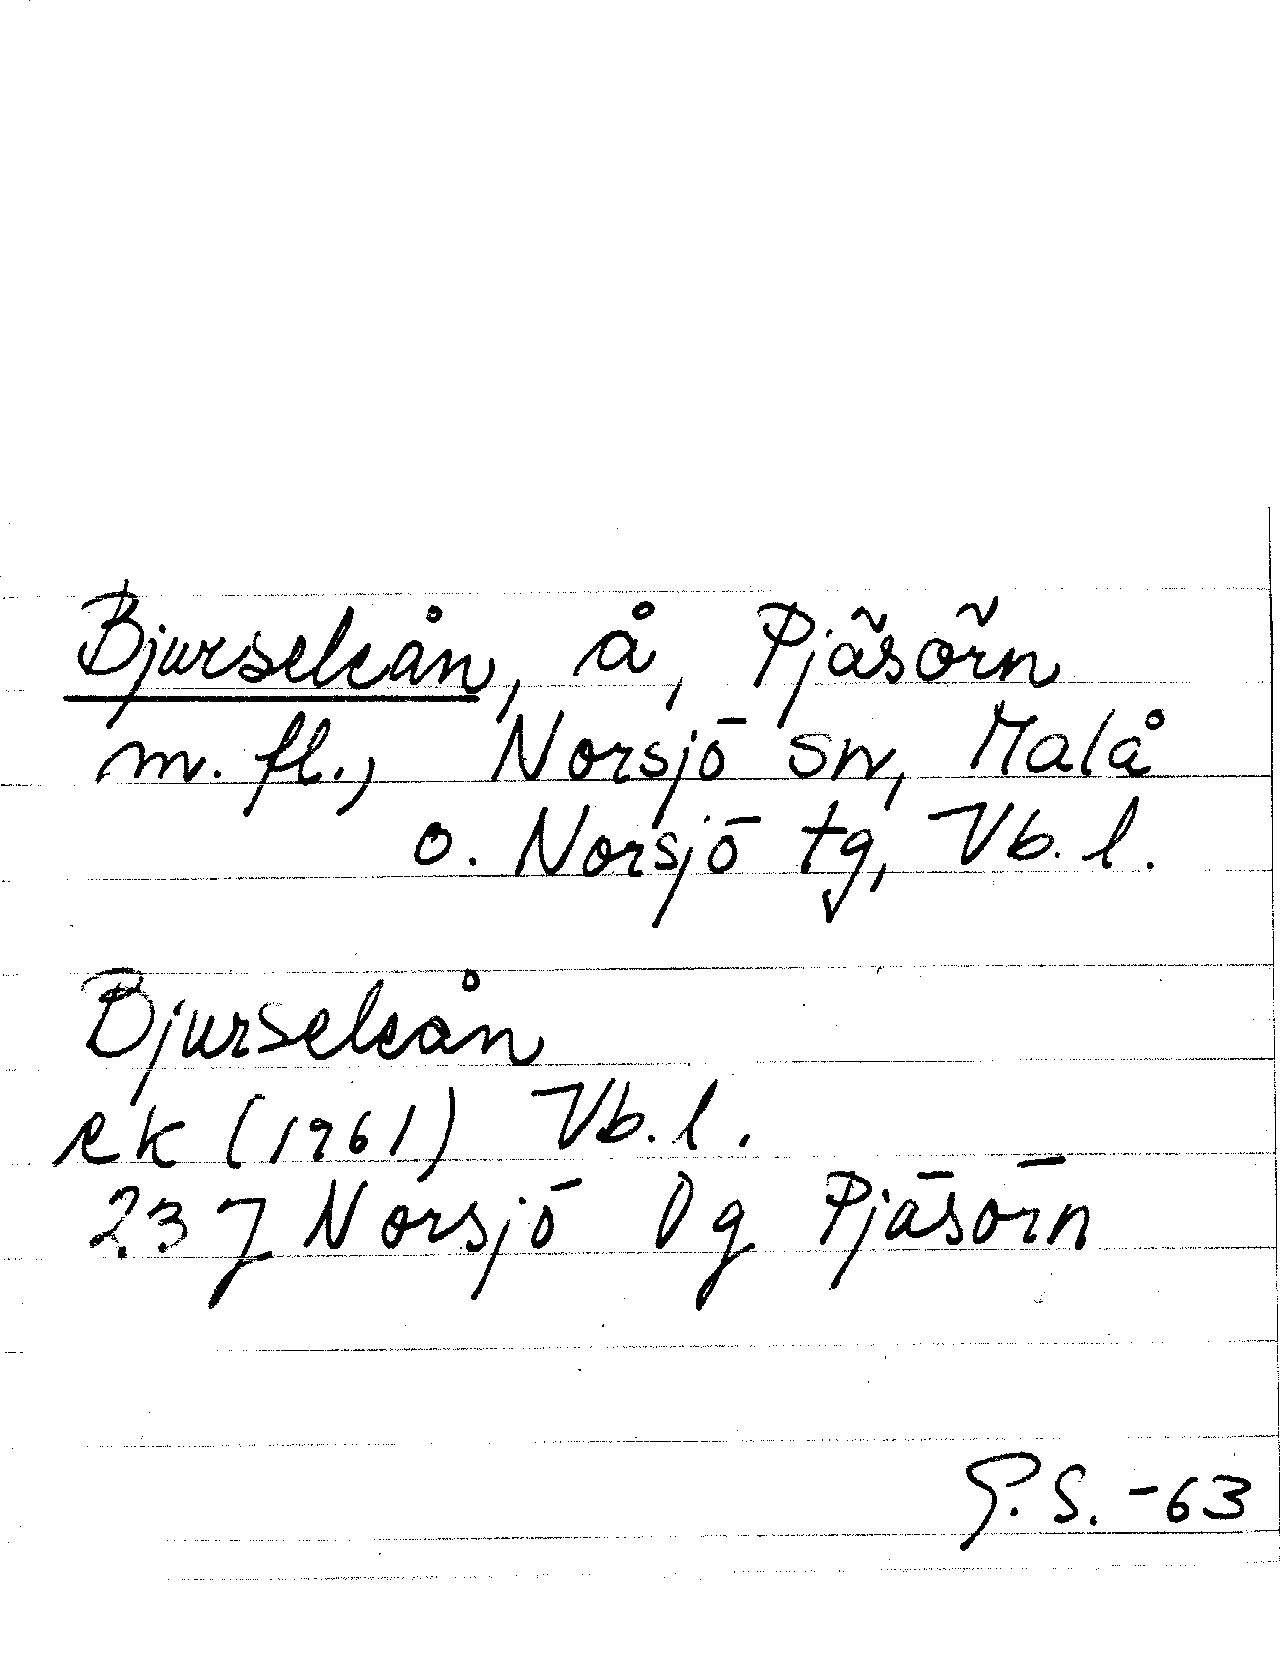 Bjurseleån, å, Pjäsörn
m. fl., Norsjö sn, Malå
o. Norsjö tg, Vb. l.
Bjurseleån
ek (1961) Vb. l.
23 J Norsjö 0 g Pjäsörn
G. S. -63